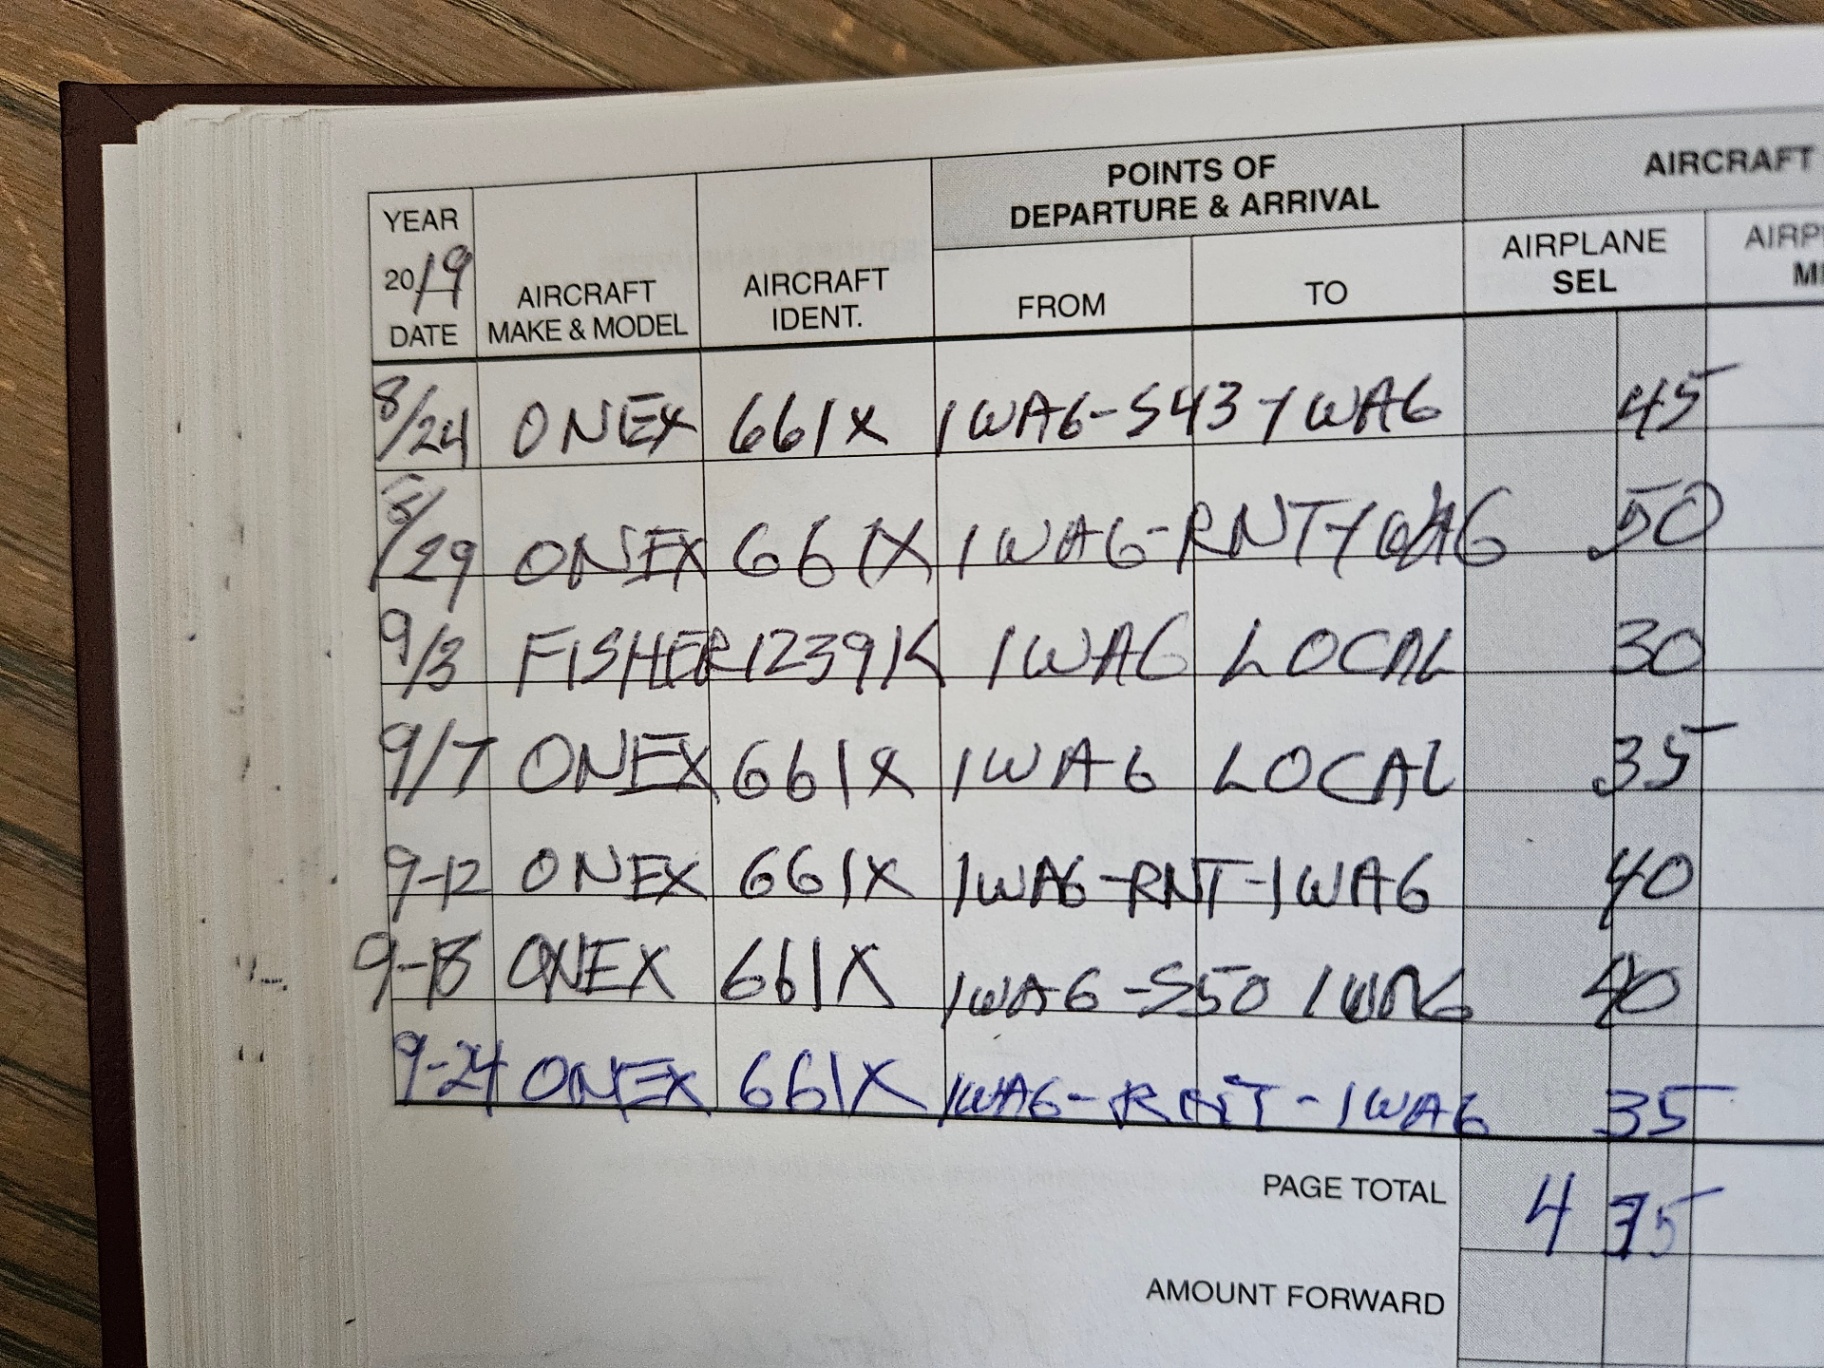 POINTS OF
DEPARTURE & ARRIVAL
AIRCRAFT
YEAR
2019
DATE
AIRCRAFT
MAKE & MODEL
AIRCRAFT
IDENT.
FROM
TO
AIRPLANE
SEL
8/24 ONEX 661X 1WA6-S43-1WA6 45
8/29 ONEX 661X 1WA6-RNT-1WA6 50
9/3 FISHER 1239K 1WA6 LOCAL 30
9/7 ONEX 661X 1WA6 LOCAL 35
9-12 ONEX 661X 1WA6-RNT-1WA6 40
9-18 ONEX 661X 1WA6-S50 1WA6 40
9-24 ONEX 661X 1WA6-RNT-1WA6 35
PAGE TOTAL 4
AMOUNT FORWARD